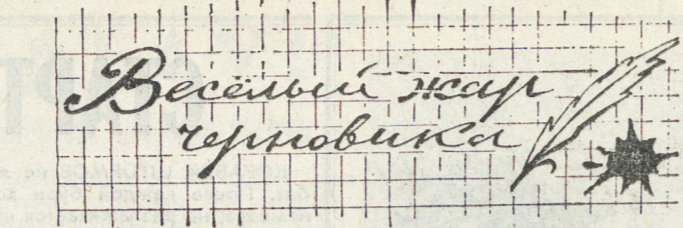 Весёлый жар
черновика